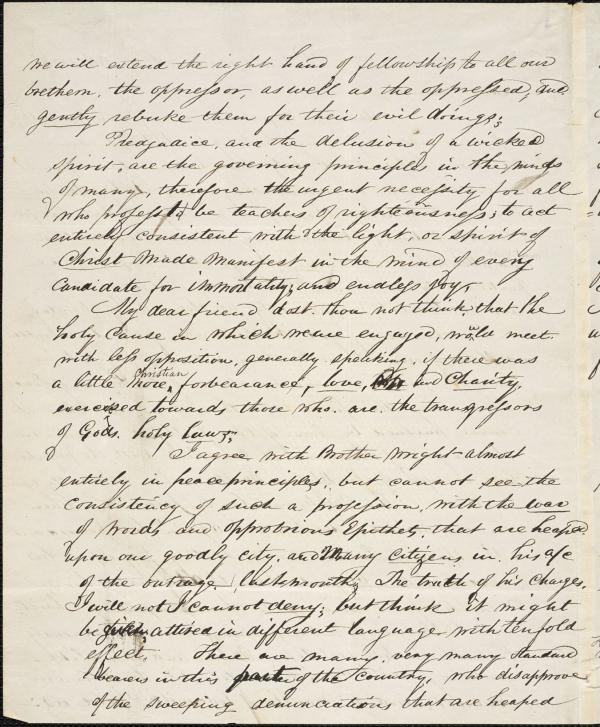 we will extend the right hand of fellowship to all our
brethern, the oppressor, as well as the oppressed, and
gently rebuke them for their evil doings;
Predjudice, and the delusion of a wicked
spirit, are the governing principles in the minds
of many, therefore the urgent necessity for all
who profess to be teachers of righteousness; to act
entirely consistent with the light, or spirit of
Christ made manifest in the mind of every
candidate for immortality; and endless joy.
My dear friend dost thou not think that the
holy cause in which we are engaged, would meet
with less opposition, generally speaking, if there was
a little more Christian forbearance, love, and Charity,
exercised towards those who are the transgressors
of Gods holy laws;
I agree with Brother Wright almost
entirely in peace principles, but cannot see the
consistency of such a profession, with the war
of words and opprobrious Epithets, that are heaped
upon our goodly city, and many citizens in his a/c
of the outrage last month; The truth of his charges,
I will not I cannot deny; but think it might
be attired in different language with tenfold
effect. There are many, very many standard
bearers in this part of the country, who disapprove
of the sweeping denunciations that are heaped